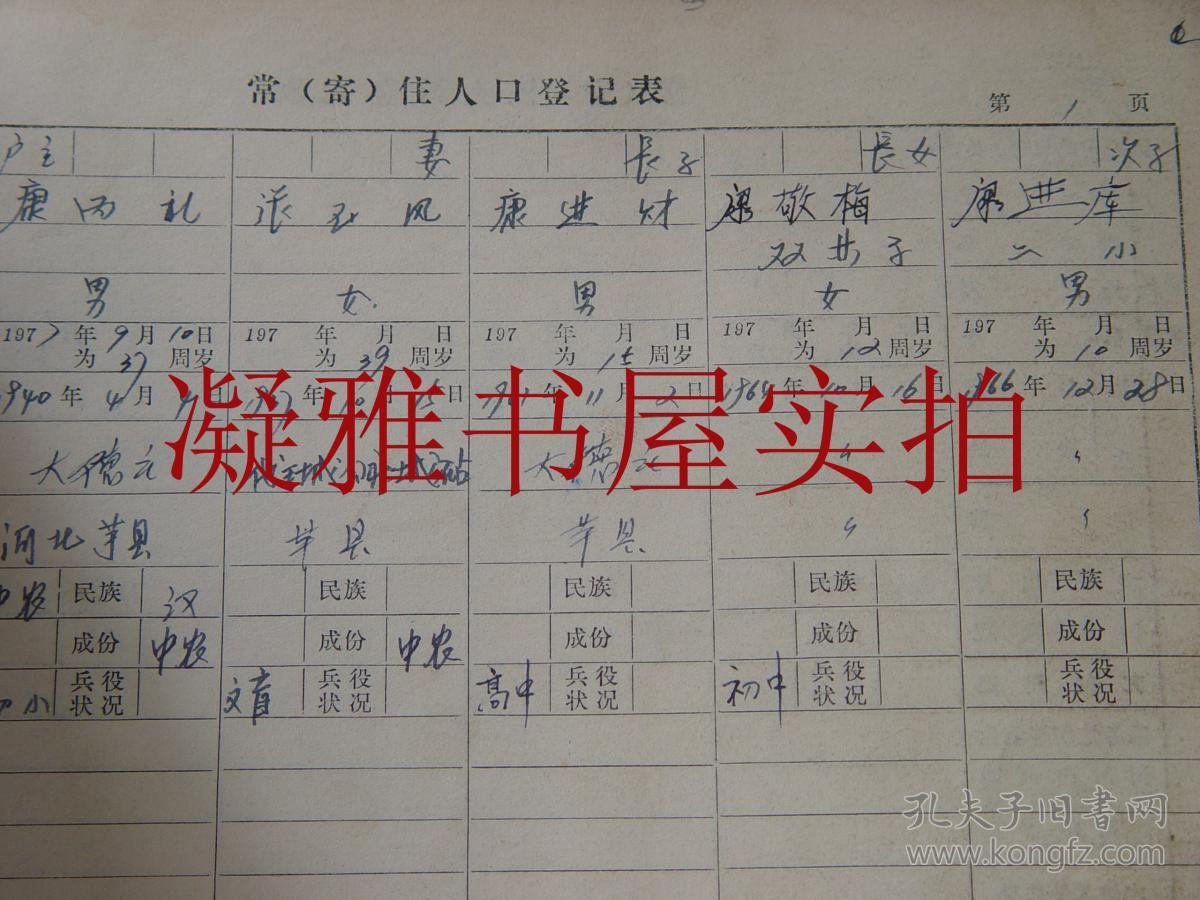 常（寄）住人口登记表
第 1 页
户主 妻 長子 長女 次子
康丙礼 张玉凤 康进财 康敬梅 康进库
双井子 二小
男 女 男 女 男
1977年9月10日 197 年 月 日 197 年 月 日 197 年 月 日 197 年 月 日
为37周岁 为39周岁 为15周岁 为12周岁 为10周岁
940年4月 日 年 月 日 年11月2日 1964年10月16日 1966年12月28日
凝雅书屋实拍
大德 大德
河北 县 县
中农 民族 汉 民族 民族 民族 民族
成份 中农 成份 中农 成份 成份 成份
初小 兵役状况 文盲 兵役状况 高中 兵役状况 初中 兵役状况 兵役状况
孔夫子旧书网
www.kongfz.com